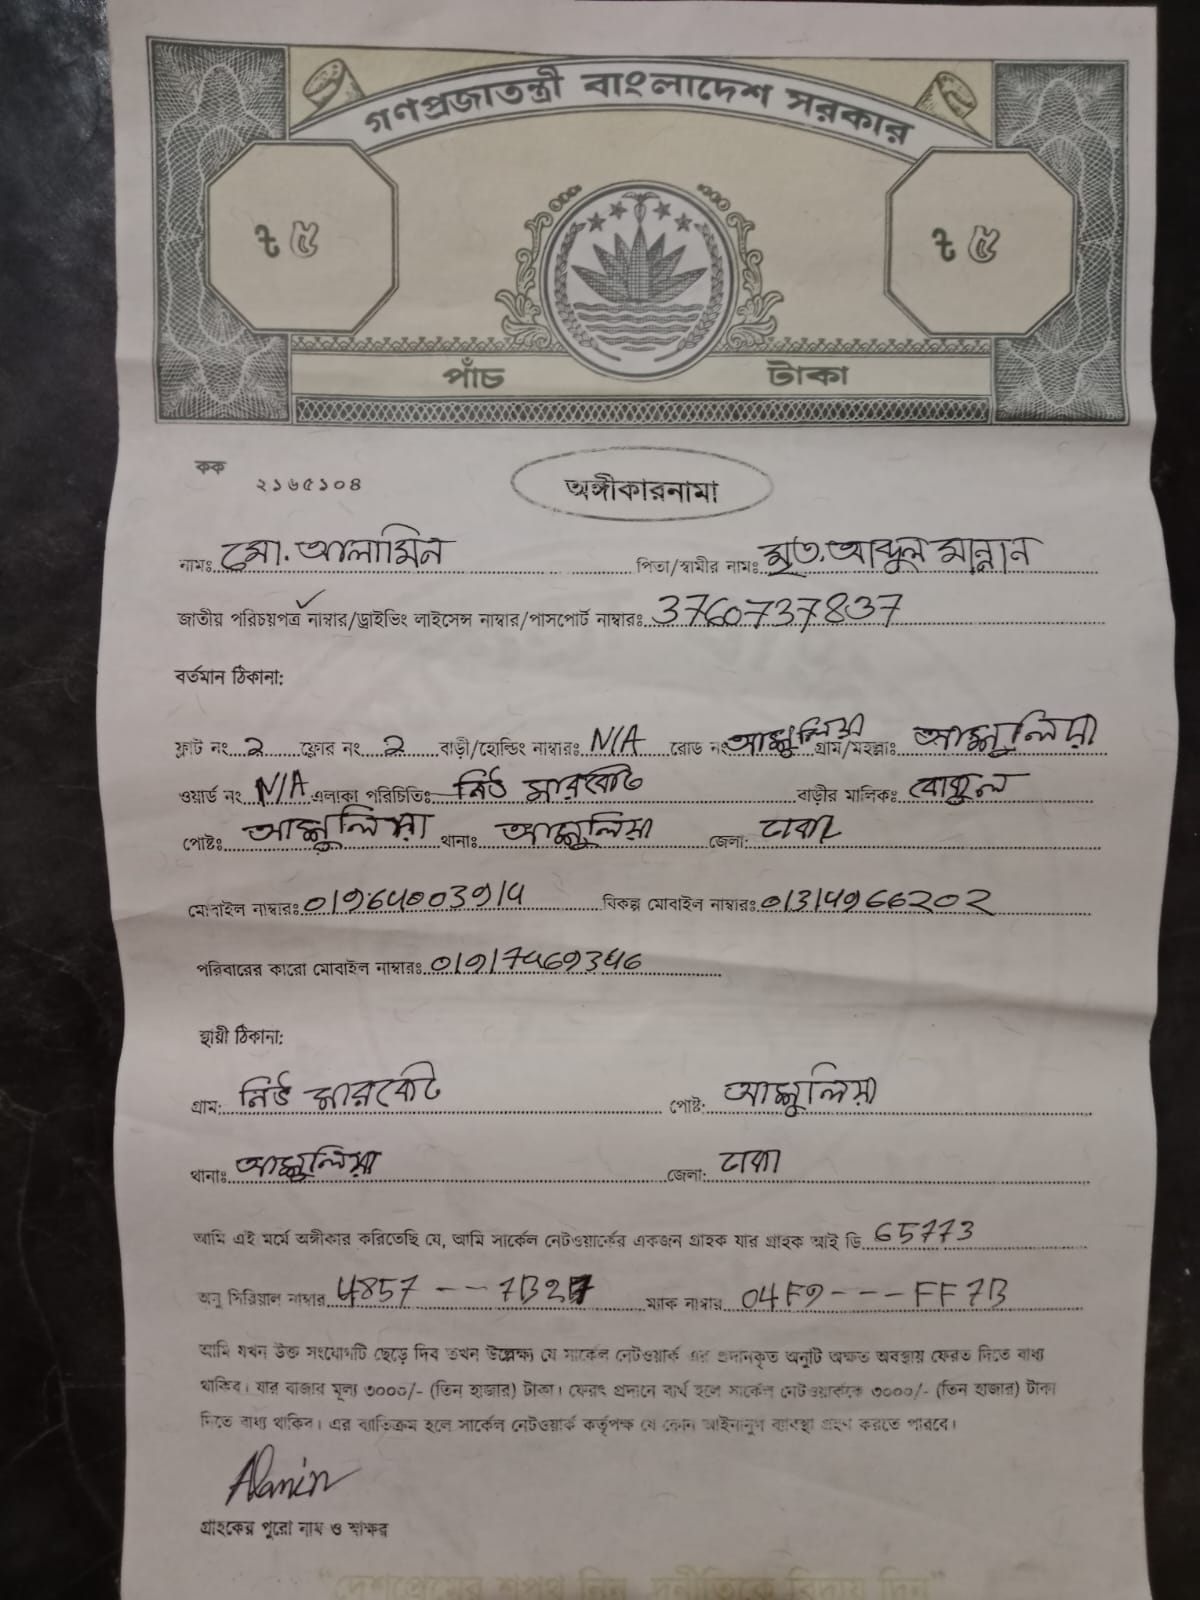 গণপ্রজাতন্ত্রী বাংলাদেশ সরকার
৳ ৫ ৳ ৫
পাঁচ টাকা
কক
২১৬৫১০৪
অঙ্গীকারনামা
নামঃ মো. আলামিন পিতা/স্বামীর নামঃ মৃত. আব্দুল মান্নান
জাতীয় পরিচয়পত্র নাম্বার/ড্রাইভিং লাইসেন্স নাম্বার/পাসপোর্ট নাম্বারঃ 3760737837
বর্তমান ঠিকানা:
ফ্লাট নং 2 ফ্লোর নং 2 বাড়ী/হোল্ডিং নাম্বারঃ N/A রোড নং আশুলিয়া গ্রাম/মহল্লাঃ আশুলিয়া
ওয়ার্ড নং N/A এলাকা পরিচিতিঃ নিউ মারকেট বাড়ীর মালিকঃ
পোষ্টঃ আশুলিয়া থানাঃ আশুলিয়া জেলা: ঢাকা
মোবাইল নাম্বারঃ 01964003914 বিকল্প মোবাইল নাম্বারঃ 01314966202
পরিবারের কারো মোবাইল নাম্বারঃ 01917469346
স্থায়ী ঠিকানা:
গ্রাম: নিউ মারকেট পোষ্ট: আশুলিয়া
থানাঃ আশুলিয়া জেলা: ঢাকা
আমি এই মর্মে অঙ্গীকার করিতেছি যে, আমি সার্কেল নেটওয়ার্কের একজন গ্রাহক যার গ্রাহক আই ডি 65773
অনু সিরিয়াল নাম্বার 4857 --- ম্যাক নাম্বার 04F9 --- FF7B
আমি যখন উক্ত সংযোগটি ছেড়ে দিব তখন উল্লেক্ষ্য যে সার্কেল নেটওয়ার্ক এর প্রদানকৃত অনুটি অক্ষত অবস্থায় ফেরত দিতে বাধ্য
থাকিব। যার বাজার মূল্য ৩০০০/- (তিন হাজার) টাকা। ফেরৎ প্রদানে ব্যর্থ হলে সার্কেল নেটওয়ার্ককে ৩০০০/- (তিন হাজার) টাকা
দিতে বাধ্য থাকিব। এর ব্যাতিক্রম হলে সার্কেল নেটওয়ার্ক কর্তৃপক্ষ যে কোন আইনানুগ ব্যবস্থা গ্রহণ করতে পারবে।
Alamin
গ্রাহকের পুরো নাম ও স্বাক্ষর
“দেশপ্রেমের শপথ নিন, দুর্নীতিকে বিদায় দিন”